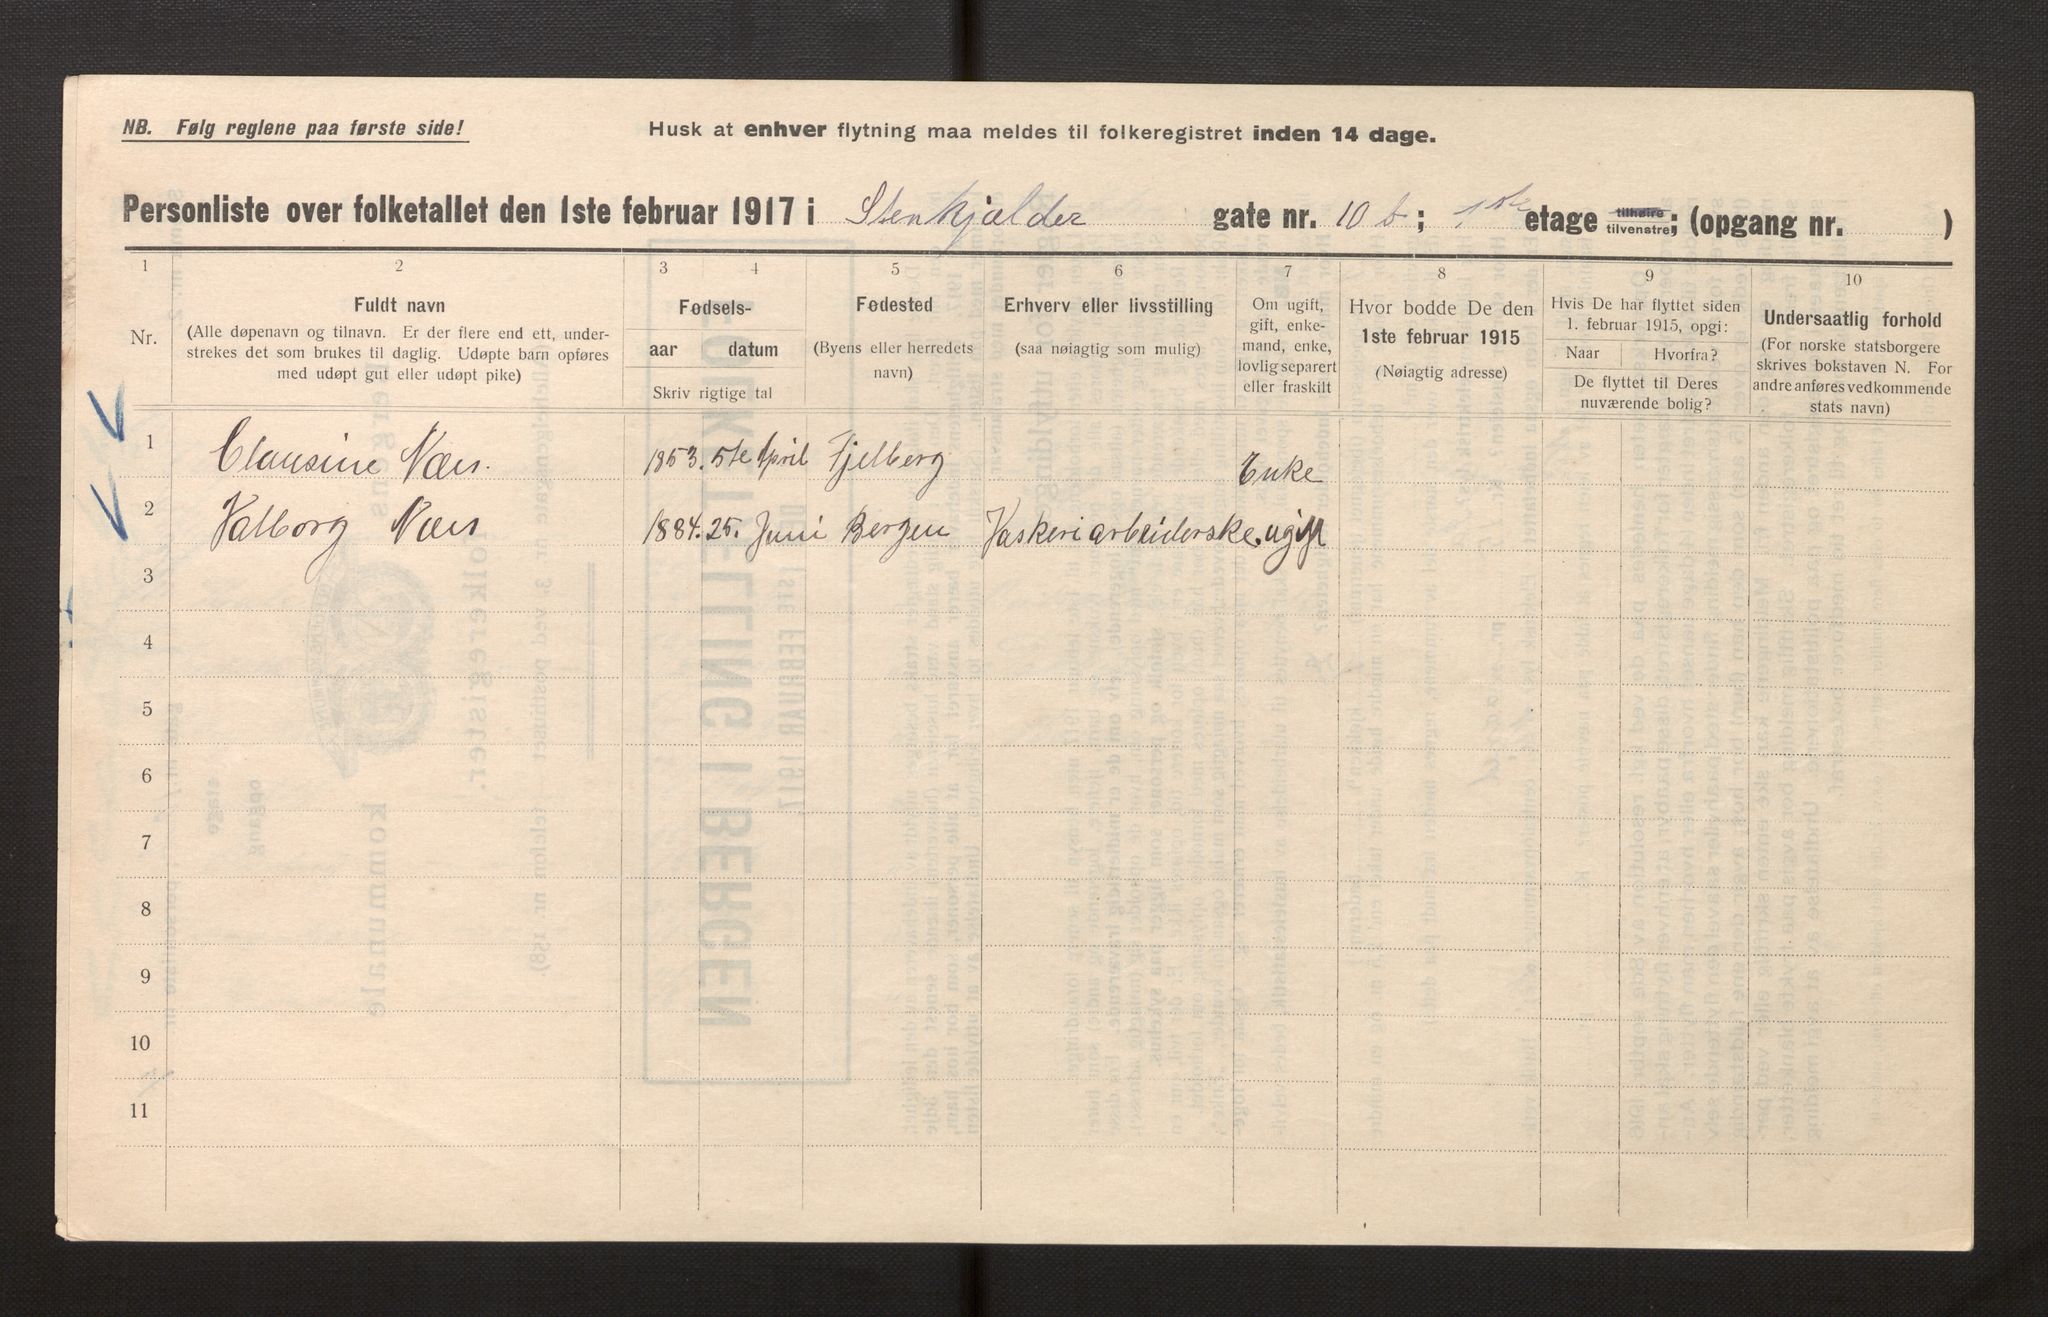 NB. Følg reglene paa første side!
Husk at enhver flytning maa meldes til folkeregistret inden 14 dage.
Personliste over folketallet den 1ste februar 1917 i Stenkjælder gate nr. 10 b; 1ste etage tilhøire tilvenstre; (opgang nr. )
1 2 3 4 5 6 7 8 9 10
Nr.
Fuldt navn
(Alle døpenavn og tilnavn. Er der flere end ett, under-
strekes det som brukes til daglig. Udøpte barn opføres
med udøpt gut eller udøpt pike)
Fødsels-
aar datum
Skriv rigtige tal
Fødested
(Byens eller herredets
navn)
Erhverv eller livsstilling
(saa nøiagtig som mulig)
Om ugift,
gift, enke-
mand, enke,
lovlig separert
eller fraskilt
Hvor bodde De den
1ste februar 1915
(Nøiagtig adresse)
Hvis De har flyttet siden
1. februar 1915, opgi:
Naar Hvorfra?
De flyttet til Deres
nuværende bolig?
Undersaatlig forhold
(For norske statsborgere
skrives bokstaven N. For
andre anføres vedkommende
stats navn)
1 Clausine Næs. 1853. 5te April Fjelberg Enke
2 Valborg Næs 1884. 25. Juni Bergen Vaskeriarbeiderske. ugift
3
4
5
6
7
8
9
10
11